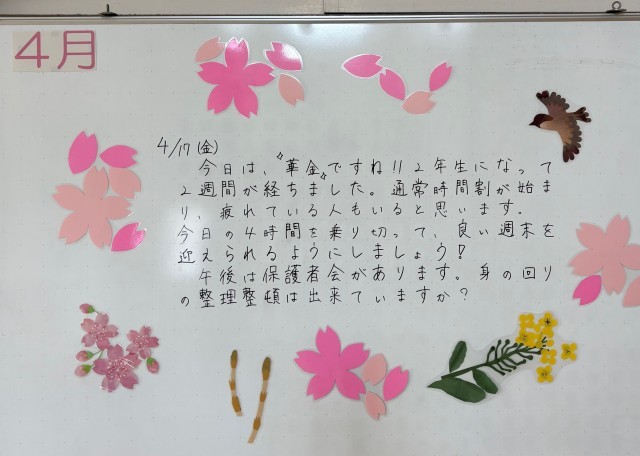 4月
4/17(金)
今日は、“華金”ですね!!2年生になって
2週間が経ちました。通常時間割が始ま
り、疲れている人もいると思います。
今日の4時間を乗り切って、良い週末を
迎えられるようにしましょう!
午後は保護者会があります。身の回り
の整理整頓は出来ていますか?